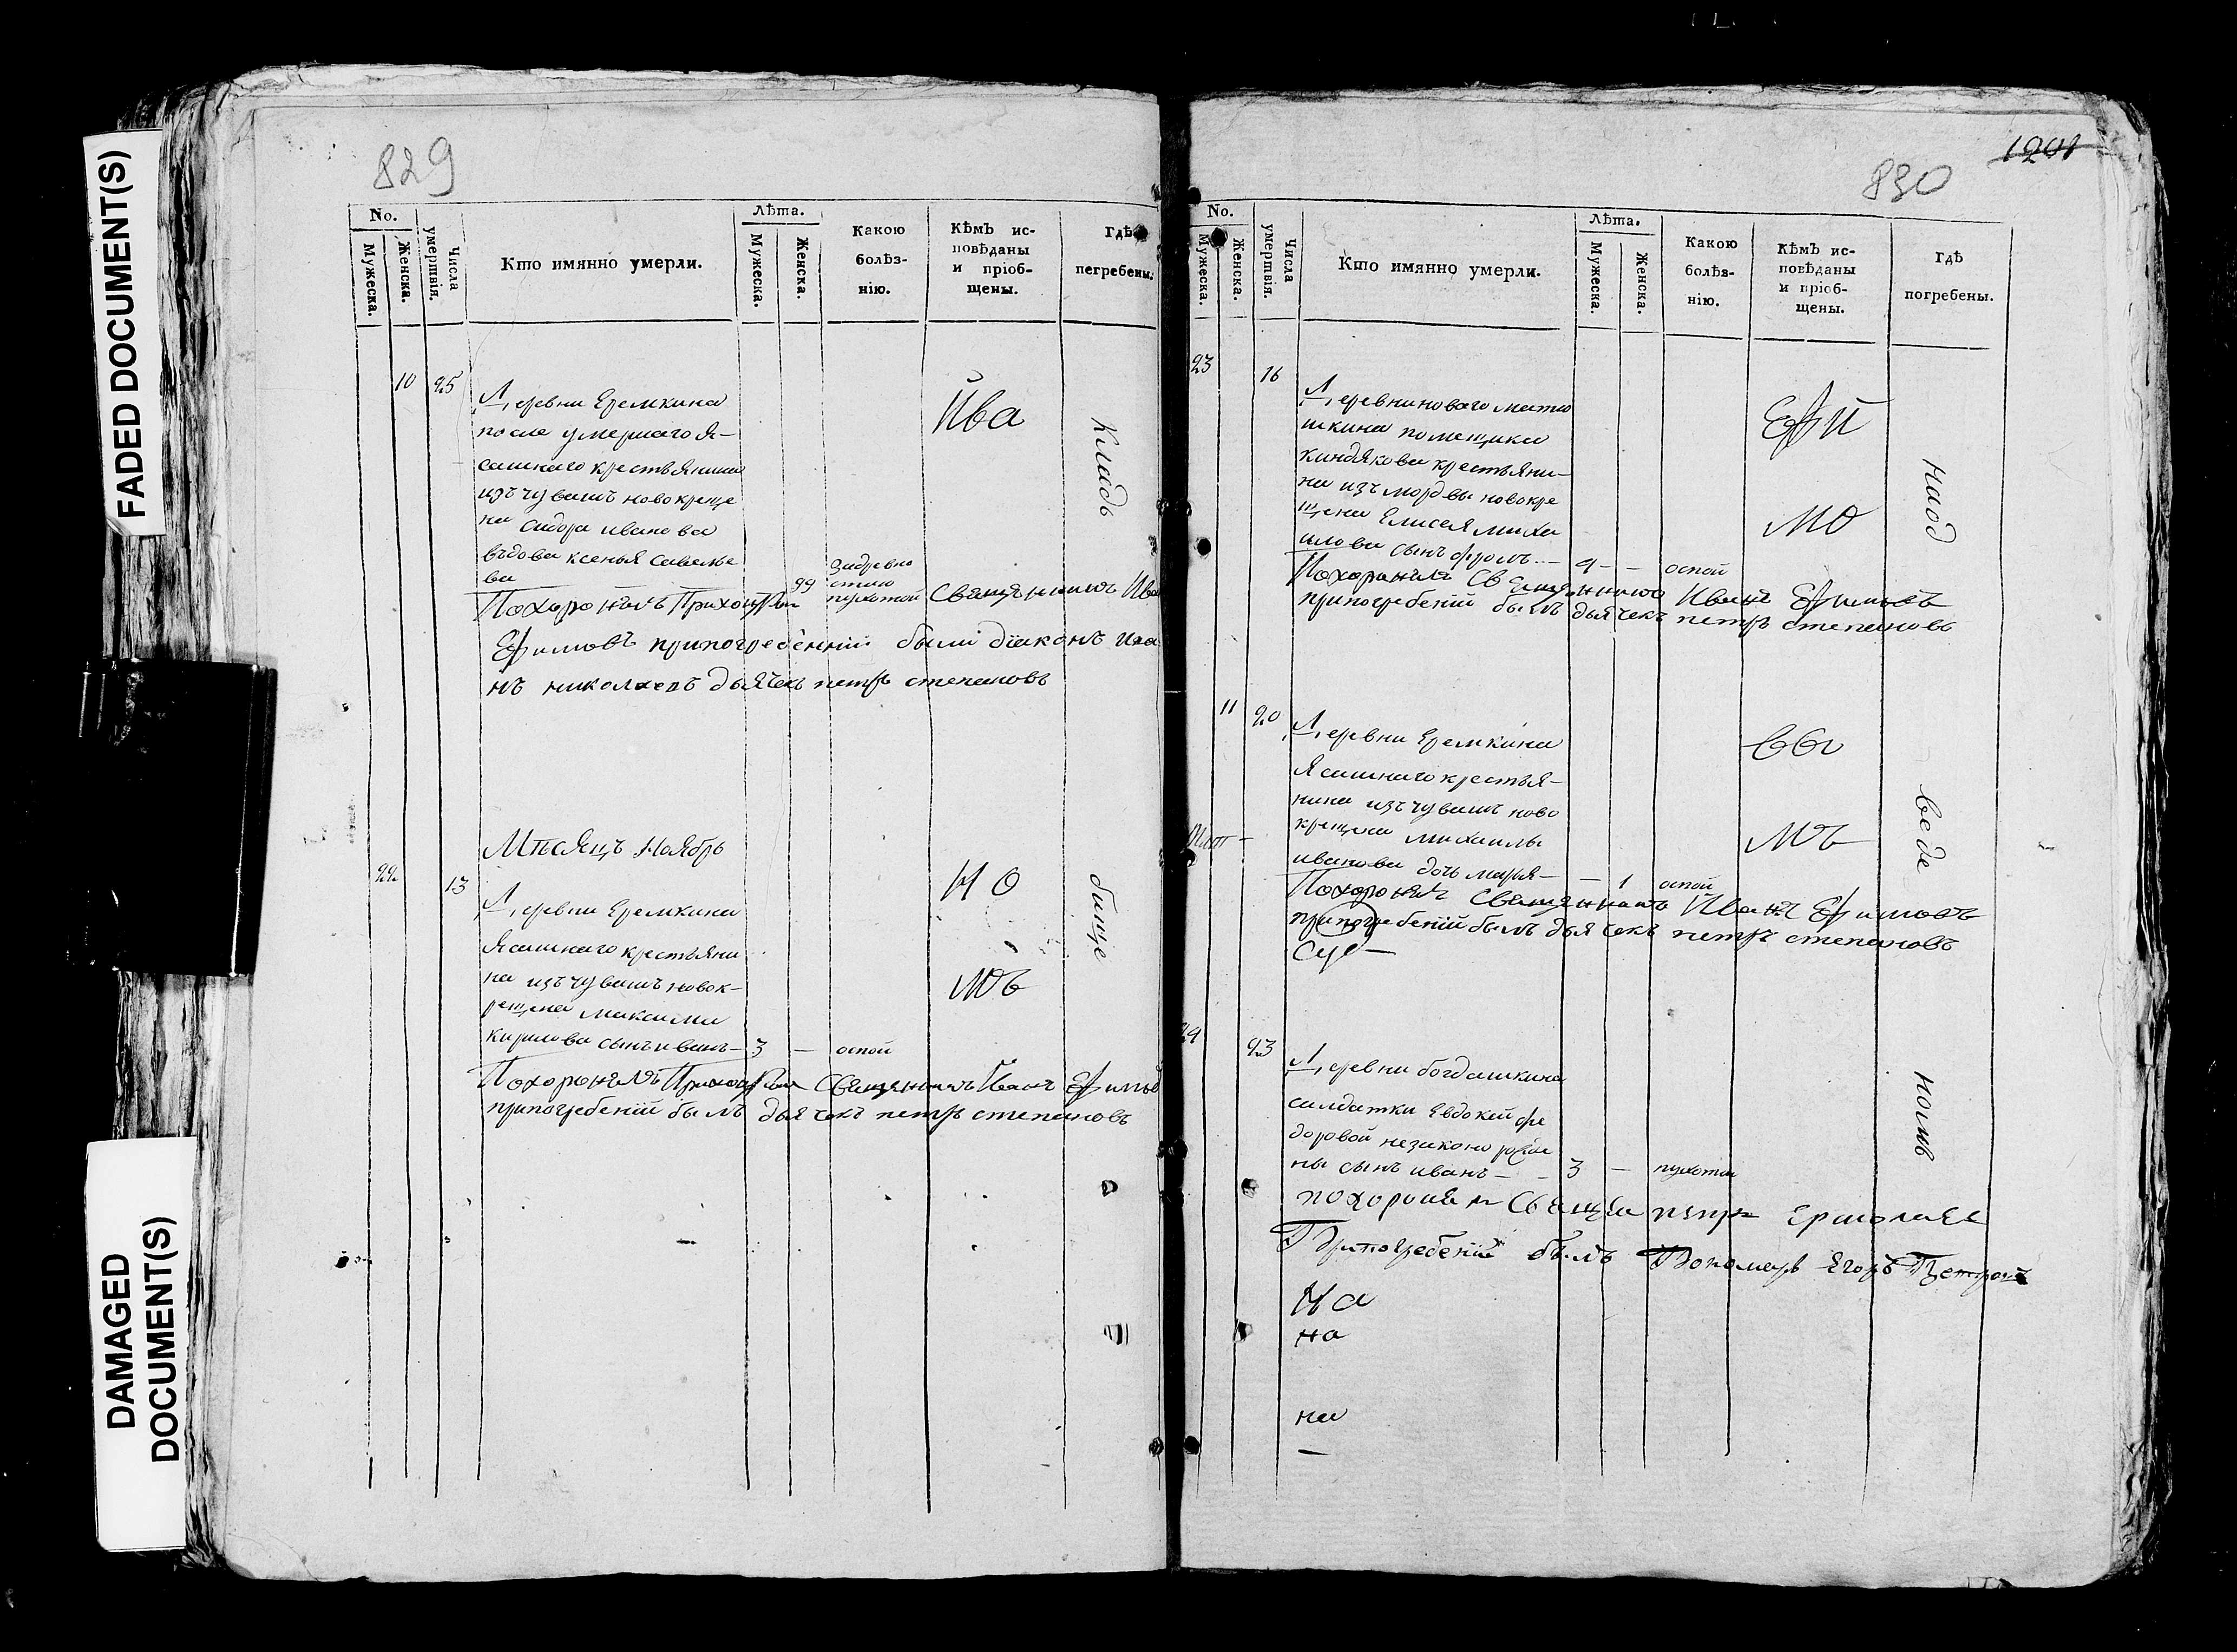 FADED DOCUMENT(S)
DAMAGED
DOCUMENT(S)
829
No.
Мужеска.
Женска.
Числа
умертвія.
Кто имянно умерли.
Лѣта.
Мужеска.
Женска.
Какою
болѣз-
нію.
Кѣмъ ис-
повѣданы
и пріоб-
щены.
Гдѣ
погребены.
10 25
Деревни Еремкина
после умершаго я-
сашнаго крестьянина
изъ чувашъ новокреще
на сидора иванова
въдова ксенья савелье
ва
99
задревно
стию
пухотой
Ива
Кладь
Похоронилъ Приходской Священникъ Ива
Ефимовъ припогребении были діаконъ ива
нъ николаевъ дьячекъ петръ степановъ
Мѣсяцъ Ноябрь
22 13
Деревни Еремкина
Ясашнаго крестьяни
на изъ чувашъ новок-
рещена максима
кирилова сынъ иванъ – 3 – оспой
НО
МЪ
бище
Похоронилъ Приходской Священникъ Иванъ Ефимов
припогребеній былъ дьячекъ петръ степановъ
1201
830
No.
Мужеска.
Женска.
Числа
умертвія.
Кто имянно умерли.
Лѣта.
Мужеска.
Женска.
Какою
болѣз-
нію.
Кѣмъ ис-
повѣданы
и пріоб-
щены.
Гдѣ
погребены.
23 16
Деревни новаго матю
шкина помещика
киндякова крестьяни-
на изъ мордвы новокре
щена Елисея миха
илова сынъ фролъ – 4 – – оспой
ЕФИ
МО
наод
Похоронилъ Священникъ Иванъ Ефимовъ
припогребеній былъ дьячекъ петръ степановъ
11 20
Деревни Еремкина
Ясашнаго крестья-
нина изъ чувашъ ново
крещена михаилы
иванова дочь марья – – 1 оспой
МЪ
веде
Похоронилъ Священникъ Иванъ Ефимовъ
припогребеній былъ дьячекъ петръ степановъ
24 23
Деревни богдашкина
салдатки Евдокей фе
доровой незаконо рожде
ны сынъ иванъ – – 3 – пухотой
номъ
похоронилъ Священ петръ ермолаев
Припогребеніи былъ Пономарь Егоръ Петровъ
На
на
на